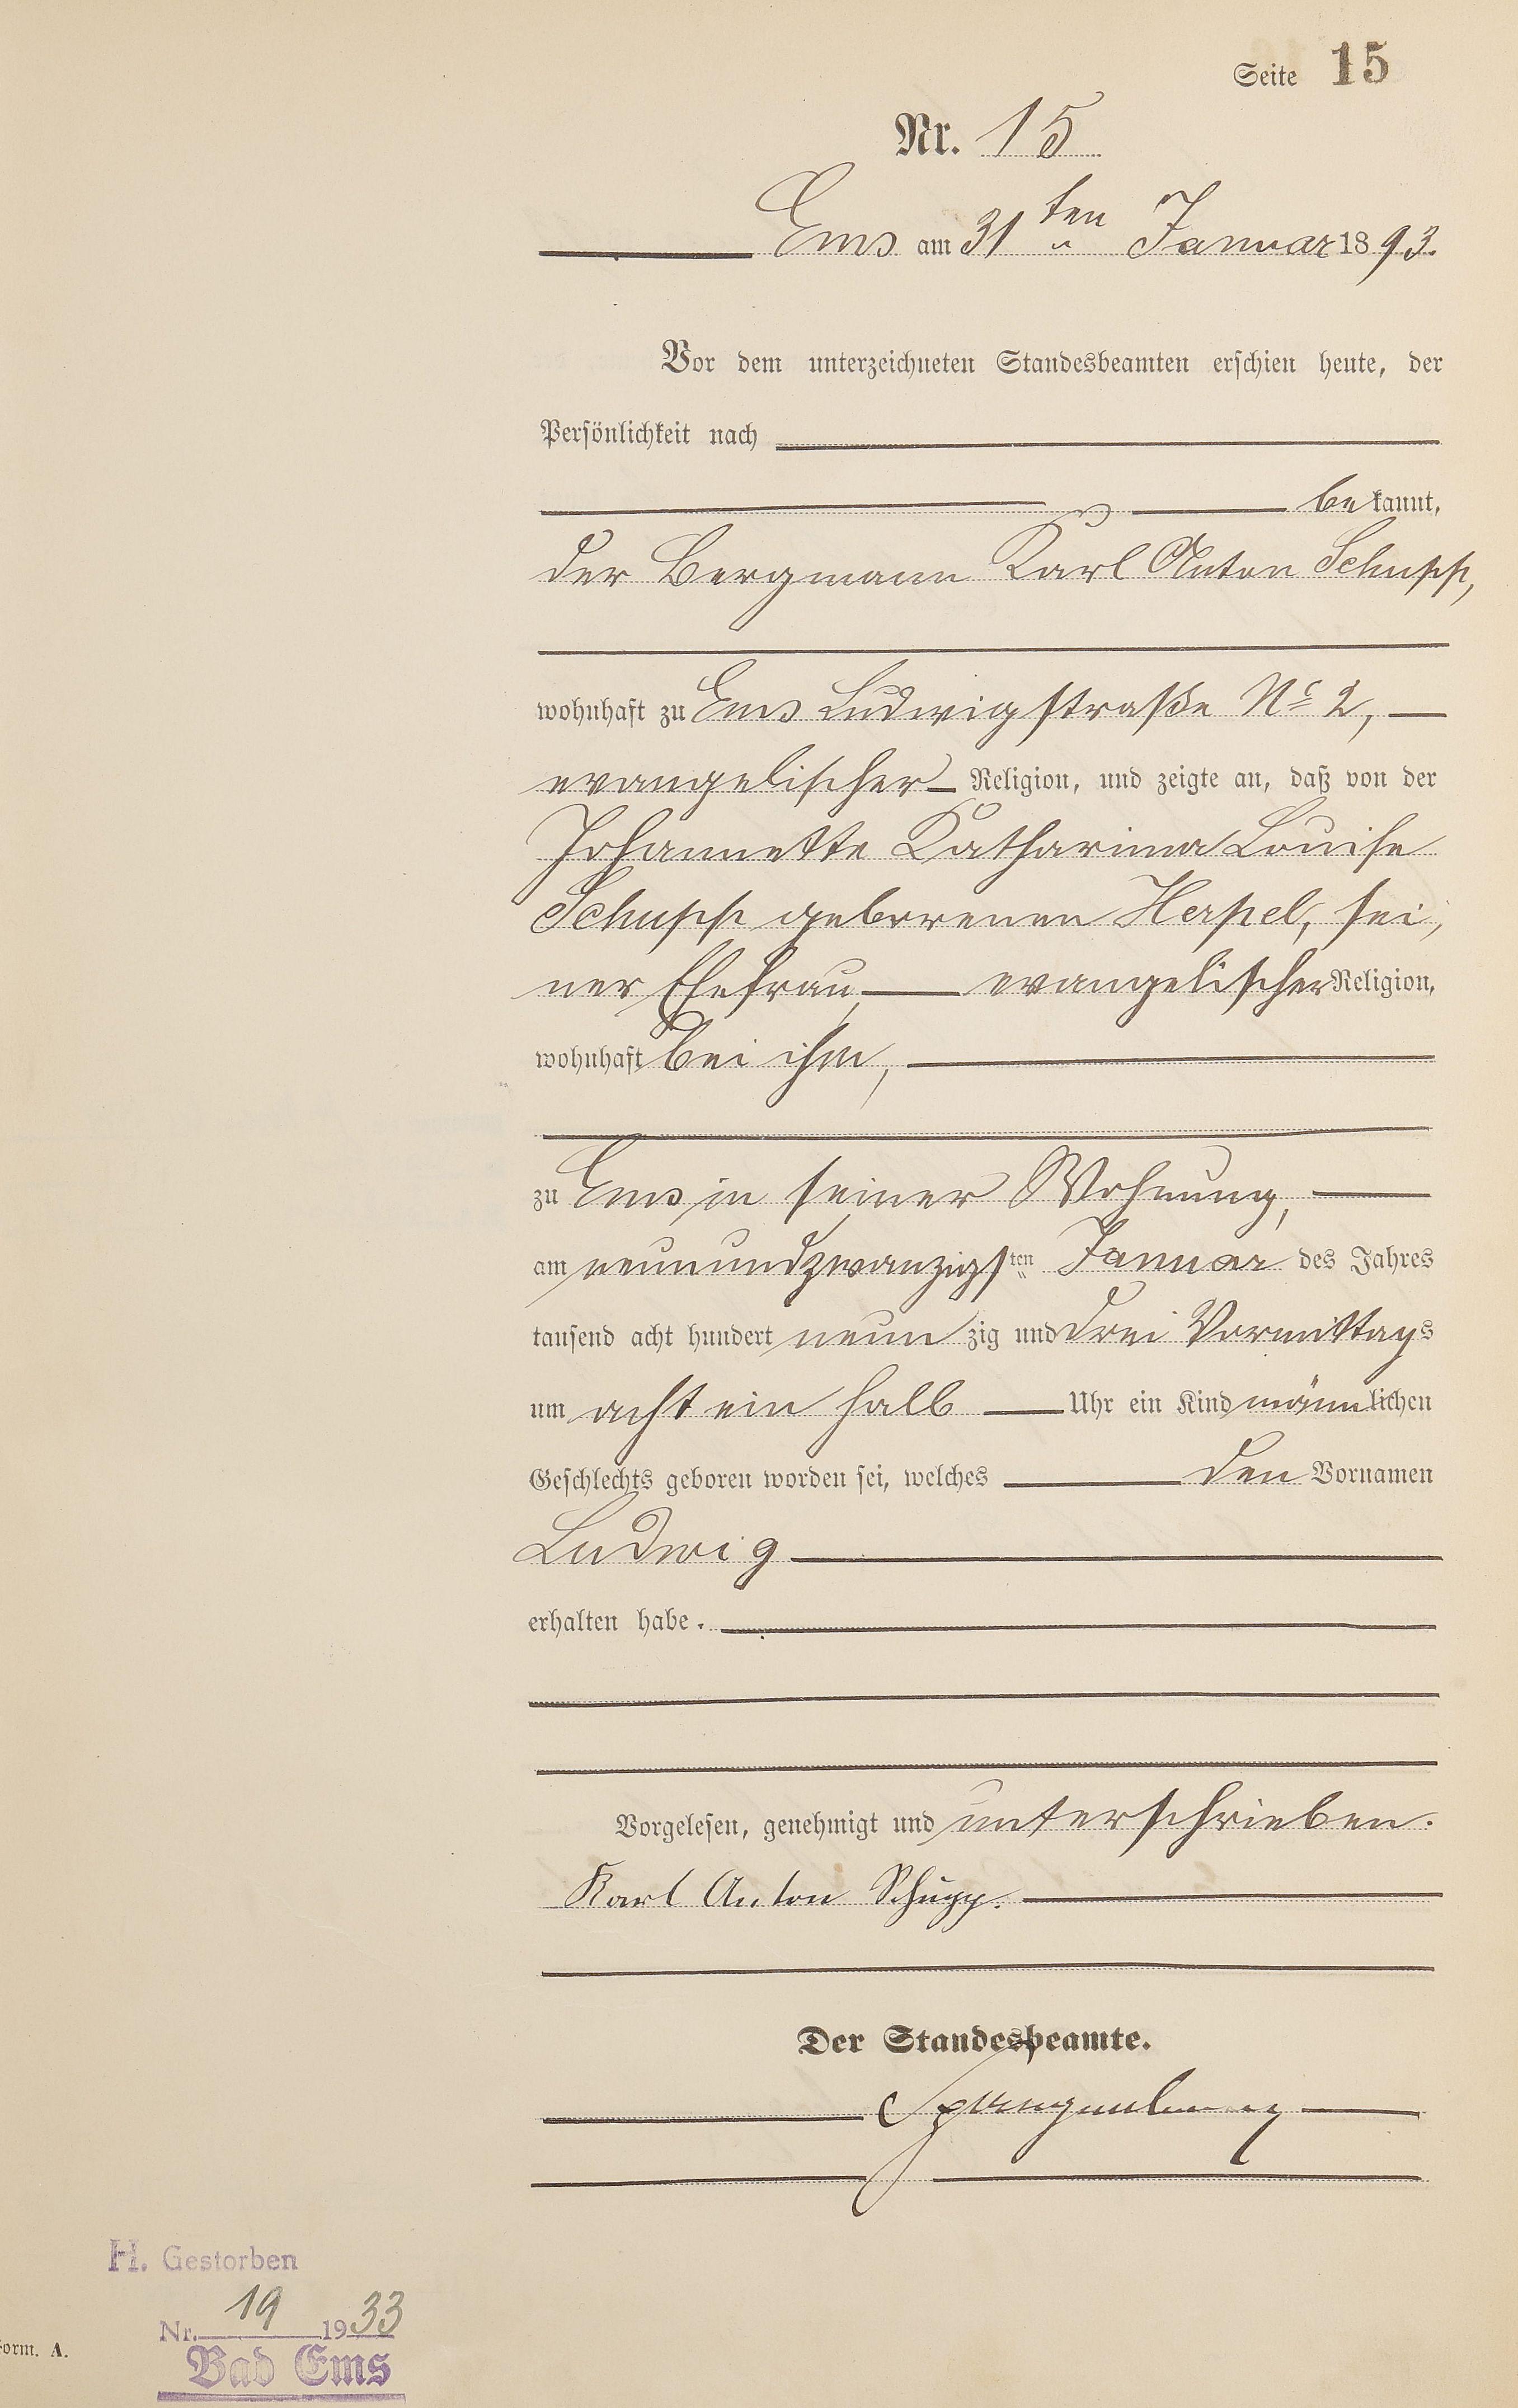 Seite 15
Nr. 15
Ems am 31ten Januar 1893.
Vor dem unterzeichneten Standesbeamten erschien heute, der
Persönlichkeit nach
bekannt,
der Bergmann Karl Anton Schupp,
wohnhaft zu Ems Ludwigstraße No 2,
evangelischer Religion, und zeigte an, daß von der
Johannette Katharina Louise
Schupp geborenen Hasel, sei,
ner Ehefrau, evangelischer Religion,
wohnhaft bei ihm,
zu Ems in seiner Wohnung,
am neunundzwanzigsten Januar des Jahres
tausend acht hundert neunzig und drei Vormittags
um acht ein halb Uhr ein Kind männlichen
Geschlechts geboren worden sei, welches den Vornamen
Ludwig
erhalten habe.
Vorgelesen, genehmigt und unterschrieben.
Karl Anton Schupp.
Der Standesbeamte.
H. Gestorben
Nr. 19 1933
Bad Ems
Form. A.